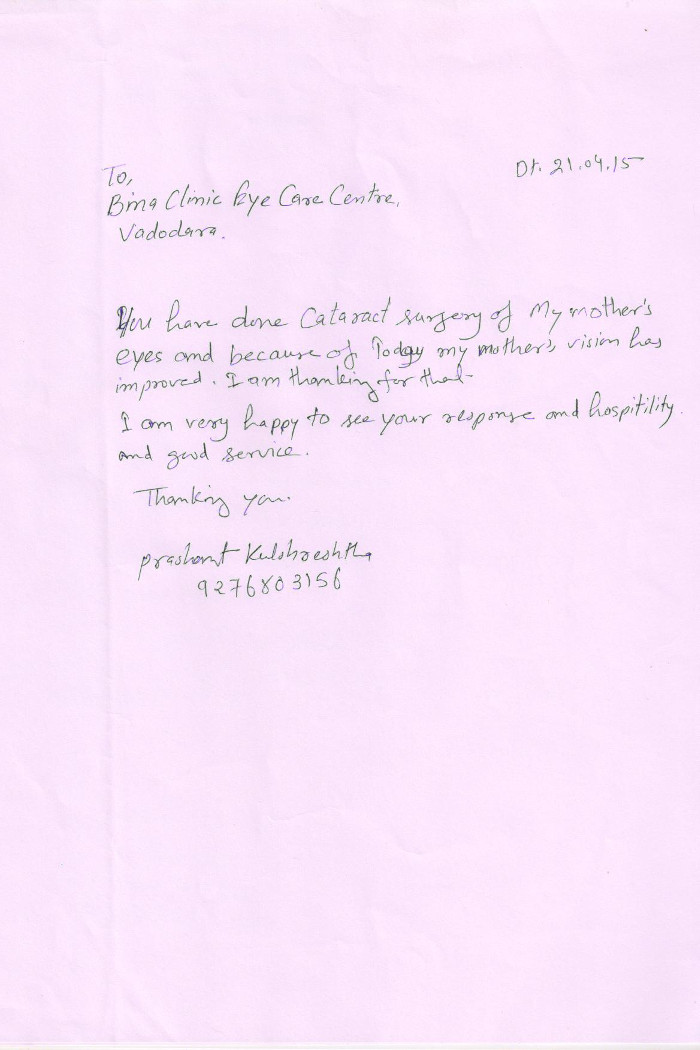 Dt. 21.04.15
To,
Bina Clinic Eye Care Centre,
Vadodara.
You have done Cataract surgery of My mother's
eyes and because of Today my mother's vision has
improved. I am thanking for that.
I am very happy to see your response and hospitility.
and good service.
Thanking you.
prashant Kulshreshtha
9276803156